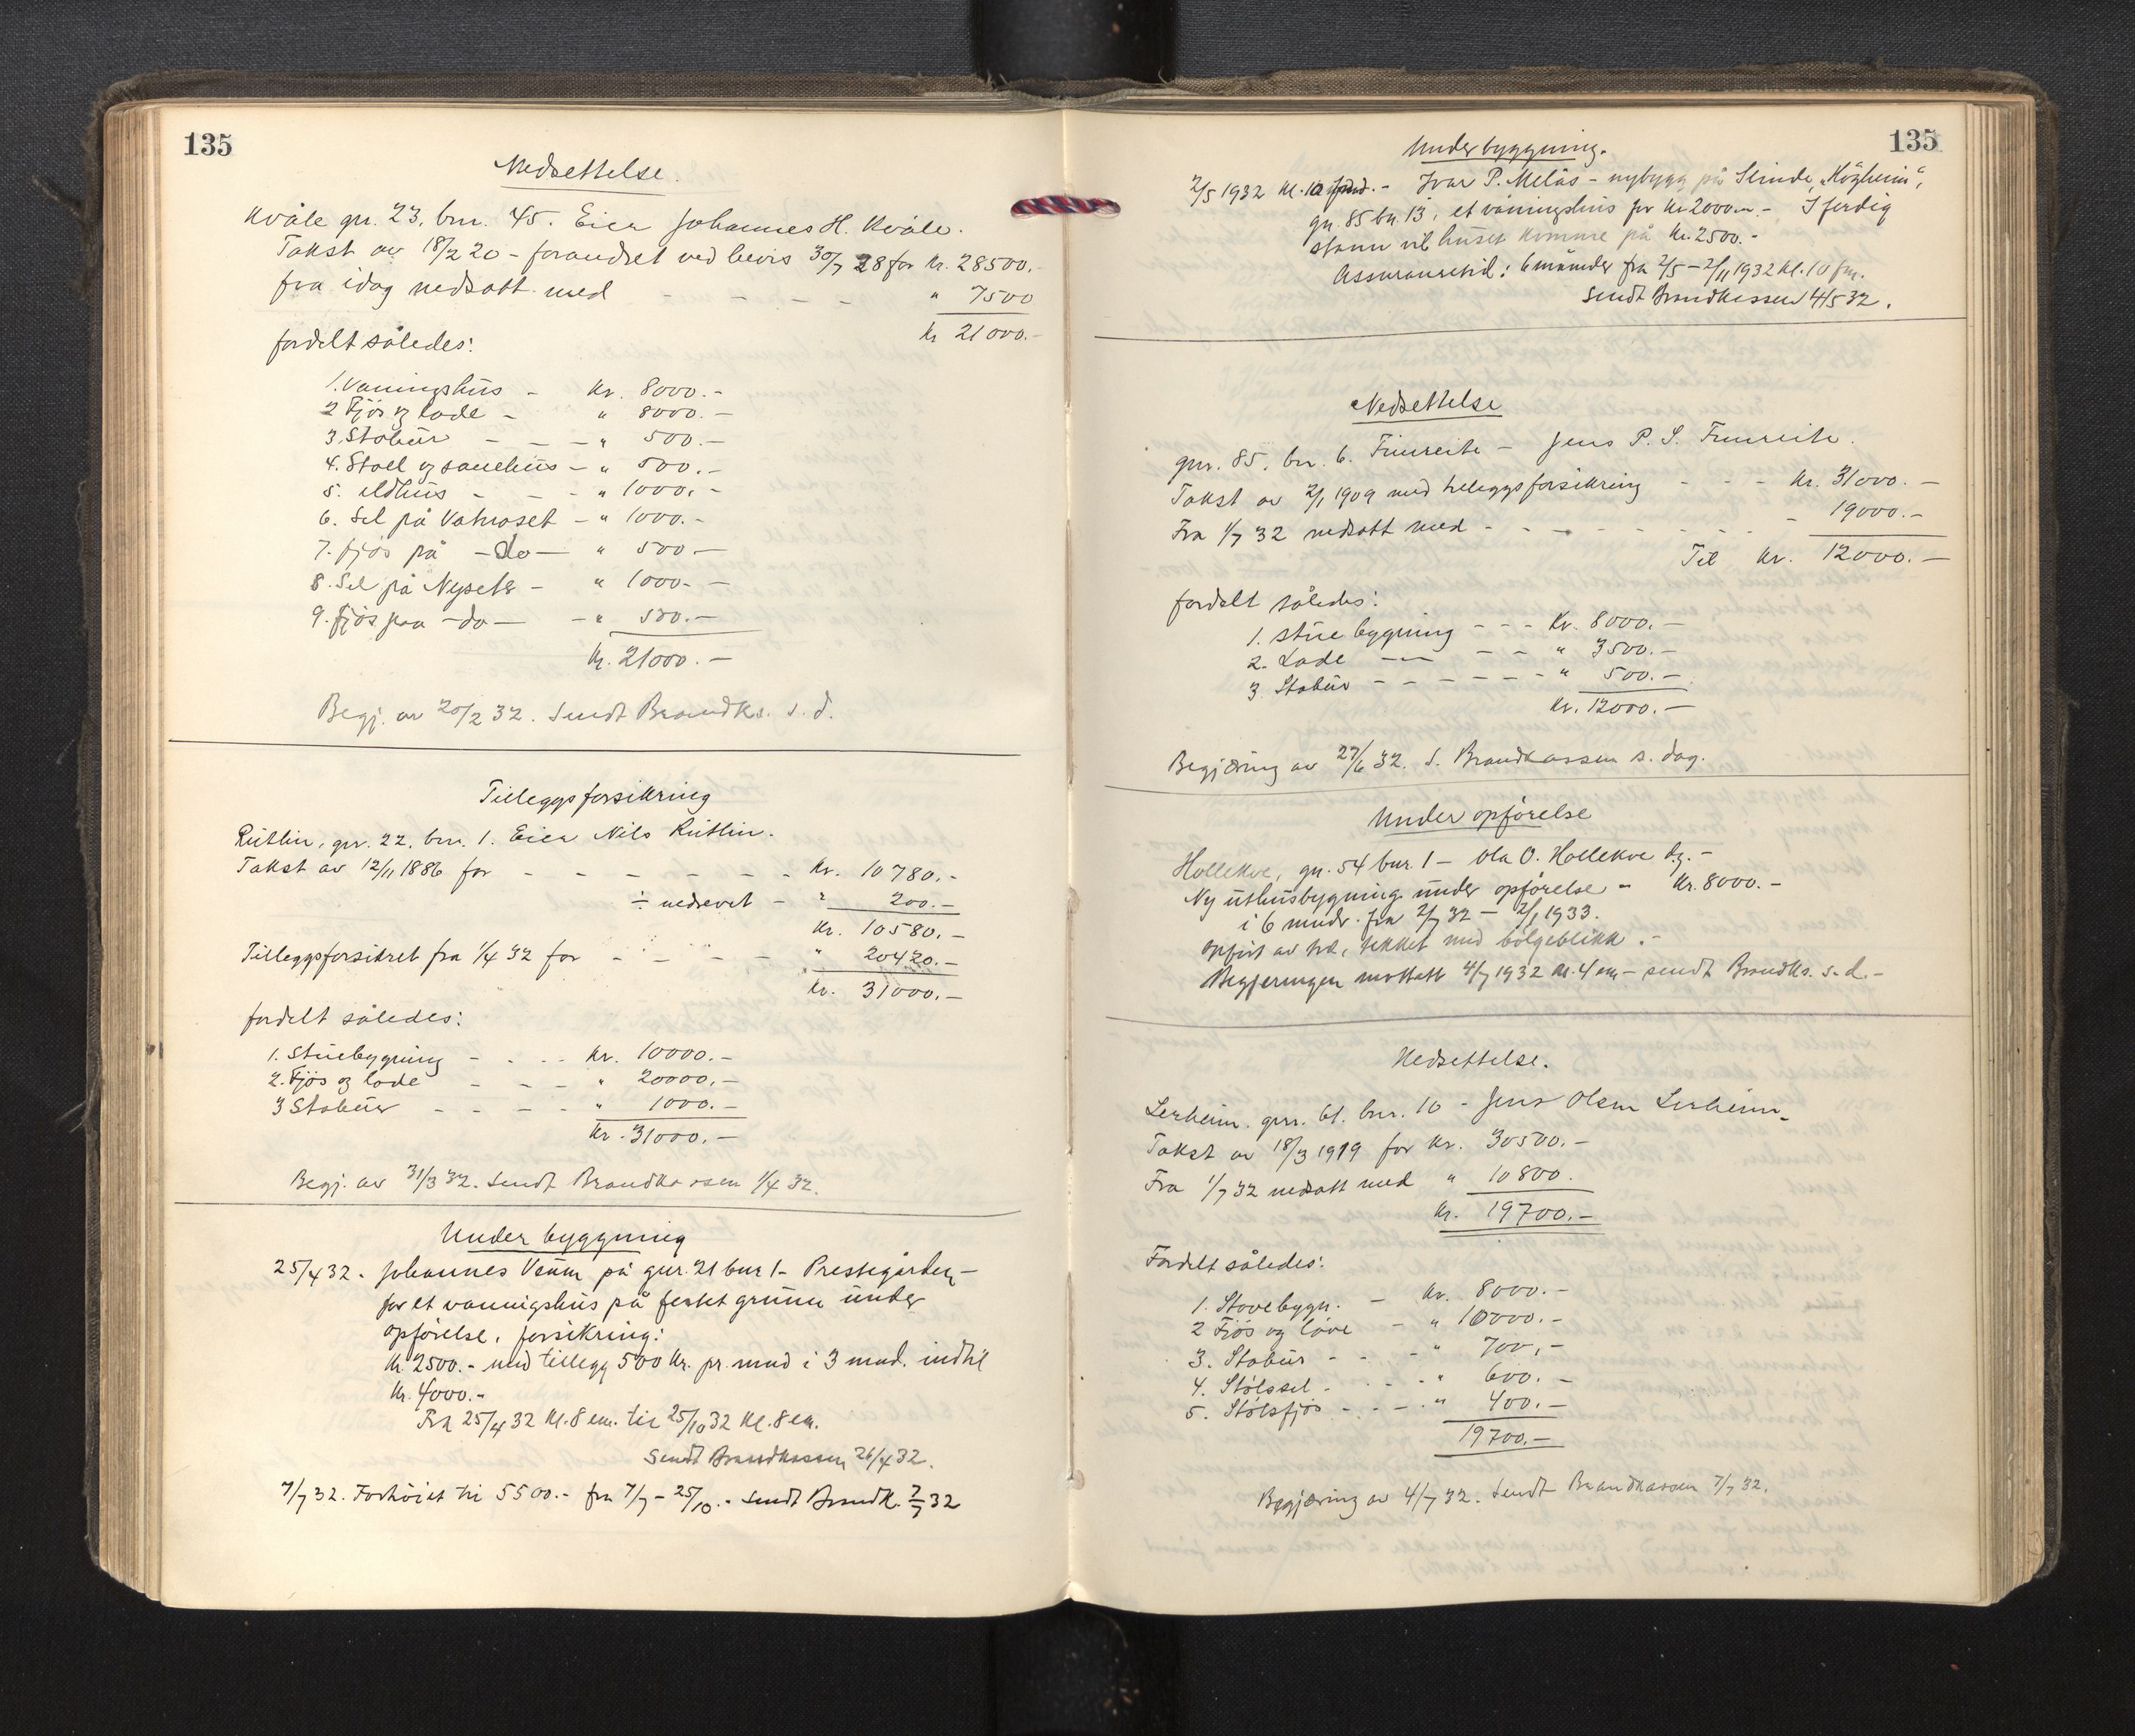 135
Nedsettelse.
Kvåle gr. 23, bnr. 45. Eier Johannes H. Kvåle.
Takst av 18/2 20 - forandret ved bevis 30/7 28 for Kr. 28500.-
fra idag nedsatt med - - - - - " 7500
Kr 21000.-
fordelt således:
1. Vaningshus - Kr. 8000.-
2 Fjös og lade - " 8000.-
3. Stabur - - - " 500.-
4. Stall og sauehus - " 500.-
5. Ildhus - - - " 1000.-
6. Sel på Vatnaset - " 1000.-
7. fjös på -do- " 500.-
8. Sel på Nyseter - " 1000.-
9. fjös paa -do- - " 500.-
Kr. 21000.-
Begj. av 20/2 32. Sendt Brandks. s. d.
Tilleggsforsikring
Rutlin, gr. 22, bnr. 1. Eier Nils Rutlin.
Takst av 12/11 1886 for - - - - - - - Kr. 10780.-
÷ nedrevet - " 200.-
Kr. 10580.-
Tilleggsforsikret fra 1/4 32 for - - - - - " 20420.-
Kr. 31000.-
fordelt således:
1. Stuebygning - - - - Kr. 10000.-
2. Fjös og lade - - - " 20000.-
3 Stabur - - - - " 1000.-
Kr. 31000.-
Begj. av 31/3 32. Sendt Brandkassen 1/4 32.
Under byggning
25/4 32. Johannes Venum på gnr. 21 bnr 1 - Prestegården -
for et vaaningshus på festet grunn under
opförelse, forsikring:
Kr. 2500.- med tillegg 500 Kr. pr. mnd i 3 mnd. indtil
Kr. 4000.-
Fra 25/4 32 Kl. 8 em. til 25/10 32 Kl. 8 em.
Sendt Brandkassen 26/4 32.
7/7 32. Forhöiet til 5500.- fra 7/7 - 25/10.- Sendt Brandk. 7/7 32
135
Under byggning.
2/5 1932 Kl. 10 - Ivar P. Melås - nybygg på Slinde,
gn. 85 bn. 13, et våningshus for Kr 2000.- I ferdig
stann vil huset komme på Kr. 2500.-
Assuransetid: 6 måneder fra 2/5 - 2/11 1932 kl. 10 fm.
Sendt Brandkassen 4/5 32.
Nedsettelse
gnr. 85, bnr. 6. Fimreite - Jens P. S. Fimreite.
Takst av 2/1 1909 med tilleggsforsikring - - - Kr. 31000.-
Fra 1/7 32 nedsatt med - - - - - - - - 19000.-
Til Kr. 12000.-
fordelt således:
1. Stuebygning - - - Kr. 8000.-
2. Lade - - - - " 3500.-
3. Stabur - - - - - - " 500.-
Kr. 12000.-
Begjæring av 27/6 32. S. Brandkassen s. dag.
Under opförelse
Hollekve, gn. 54 bnr. 1 - Ola O. Hollekve d.y. -
Ny uthusbygning under opförelse - Kr. 8000.-
i 6 mndr. fra 2/7 32 - 2/1 1933.
opfört av tre, tekket med bölgeblikk.-
Begjeringen mottatt 4/7 1932 kl. 4 em - sendt Brandks. s. d.-
Nedsettelse.
Lerheim. gnr. 61. bnr. 10 - Jens Olsen Lerheim -
Takst av 18/3 1919 for Kr. 30500.-
Fra 1/7 32 nedsatt med " 10800.
Kr. 19700.-
Fordelt således:
1. Stovebygn. - Kr. 8000.-
2 Fjös og löve - " 10000.-
3. Stabur - - - " 700.-
4. Stölssel - - - - " 600.-
5. Stölsfjös - - - - " 400.-
19700.-
Begjæring av 4/7 32. Sendt Brandkassen 7/7 32.